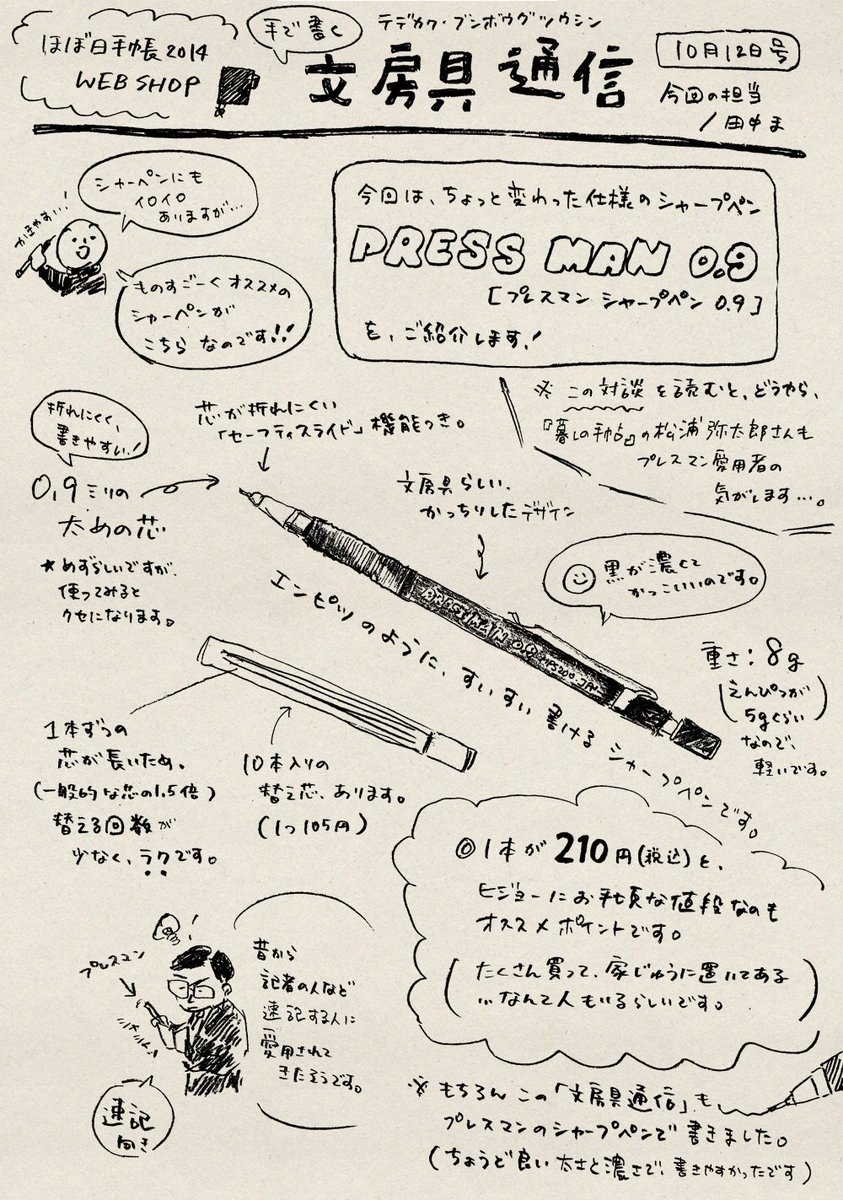 ほぼ日手帳2014
WEB SHOP
手で書く
テデカク・ブンボウグツウシン
文房具通信
10月12日号
今回の担当
/田中ま
シャーペンにも
イロイロ
ありますが…
かきやすい…!
ものすごーくオススメの
シャーペンが
こちらなのです!!
今回は、ちょっと変わった仕様のシャープペン
PRESS MAN 0.9
[プレスマン シャープペン 0.9]
を、ご紹介します!
※この対談を読むと、どうやら、
『暮しの手帖』の松浦弥太郎さんも
プレスマン愛用者の
気がします…。
折れにくく、
書きやすい!
0.9ミリの
太めの芯
★めずらしいですが、
使ってみると
クセになります。
芯が折れにくい
「セーフティスライド」機能つき。
文房具らしい、
かっちりしたデザイン
黒が濃くて
かっこいいのです。
PRESS MAN 0.9
エンピツのように、すいすい書けるシャープペンです。
重さ:8g
(えんぴつが
5gくらい)
なので、
軽いです。
1本ずつの
芯が長いため、
(一般的な芯の1.5倍)
替える回数が
少なく、ラクです。
10本入りの
替え芯、あります。
(1つ105円)
◎1本が210円(税込)と、
ヒジョーにお手頃な値段なのも
オススメポイントです。
(たくさん買って、家じゅうに置いてある
…なんて人もいるらしいです。)
プレスマン
速記
向き
昔から
記者の人など
速記する人に
愛用されて
きたそうです。
※もちろんこの「文房具通信」も、
プレスマンのシャープペンで書きました。
(ちょうど良い太さと濃さで、書きやすかったです)